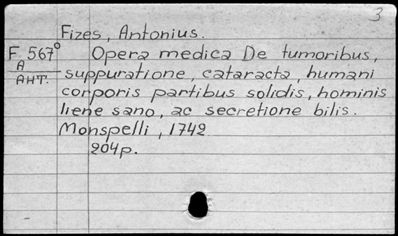 3
Fizes, Antonius.
F 567° Opera medica De tumoribus,
A suppuratione, cataracta, humani
АНТ. corporis partibus solidis, hominis
liene sano, ac secretione bilis.
Monspelli, 1742
204p.